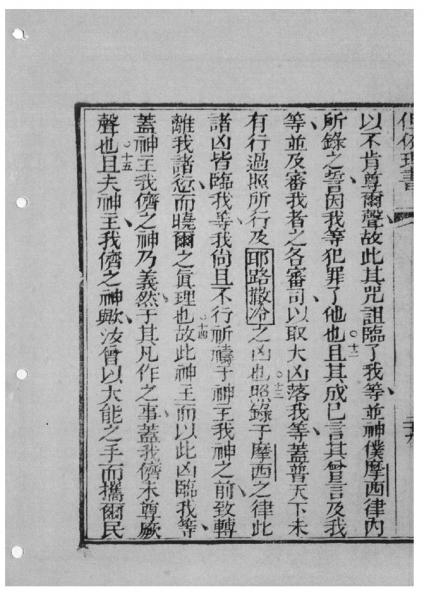 但依理書
以不肯尊爾聲故此其咒詛臨了我等並神僕摩西律內
所錄之誓因我等犯罪了他也○十二且其成已言其曾言及我
等並及審我者之各審司以取大凶落我等蓋普天下未
有行過照所行及耶路撒冷之凶也○十三照錄于摩西之律此
諸凶皆臨我等我尚且不行祈禱于神主我神之前致轉
離我諸愆而曉爾之眞理也○十四故此神主而以此凶臨我等
蓋神主我儕之神乃義然于其凡作之事蓋我儕未尊厥
聲也○十五且夫神主我儕之神歟汝曾以大能之手而攜爾民